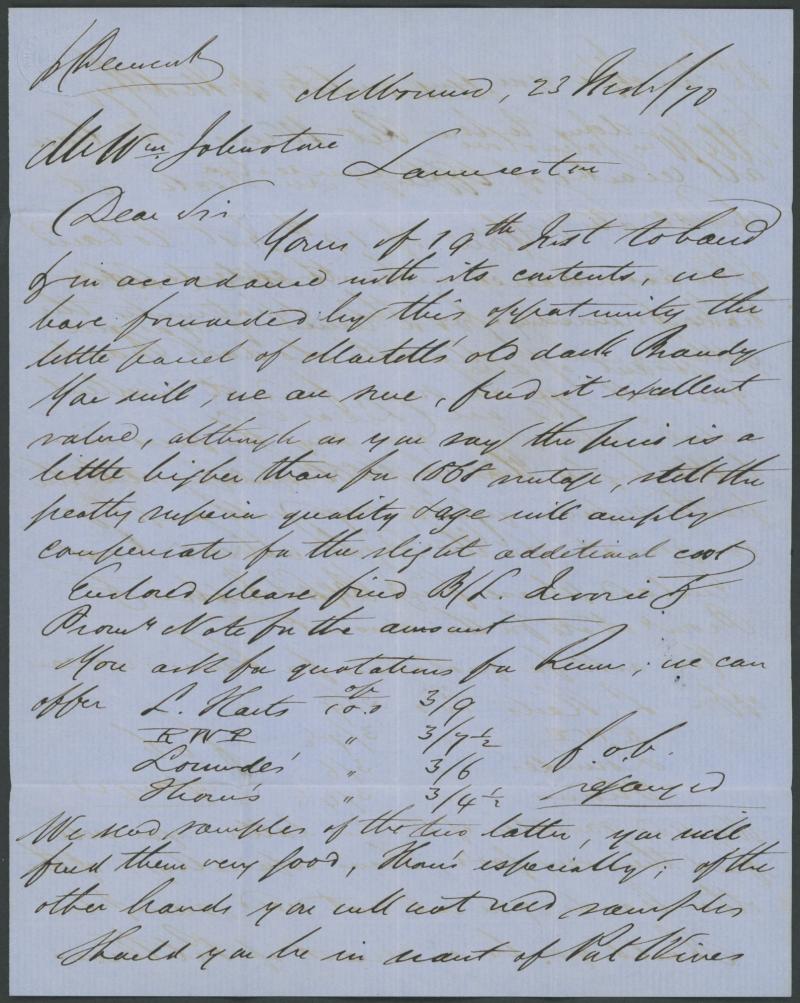 Melbourne, 23 /70
Mr Wm. Johnstone
Launceston
Dear Sir
Yours of 19th Inst to hand
& in accordance with its contents, we
have forwarded by this opportunity the
little parcel of Martell's old dark Brandy
You will, we are sure, find it excellent
value, although as you say the price is a
little higher than for 1868 vintage, still the
greatly superior quality & age will amply
compensate for the slight additional cost
Enclosed please find B/L. Invoice &
Promy Note for the amount
You ask for quotations for Rum; we can
offer L. Harts 10.0 3/9
RWP " 3/7½
Lowndes' " 3/6 f.o.b.
Thom's " 3/4½ regauged
We send samples of the two latter, you will
find them very good, Thom's especially; of the
other brands you will not need samples
Should you be in want of Port Wines